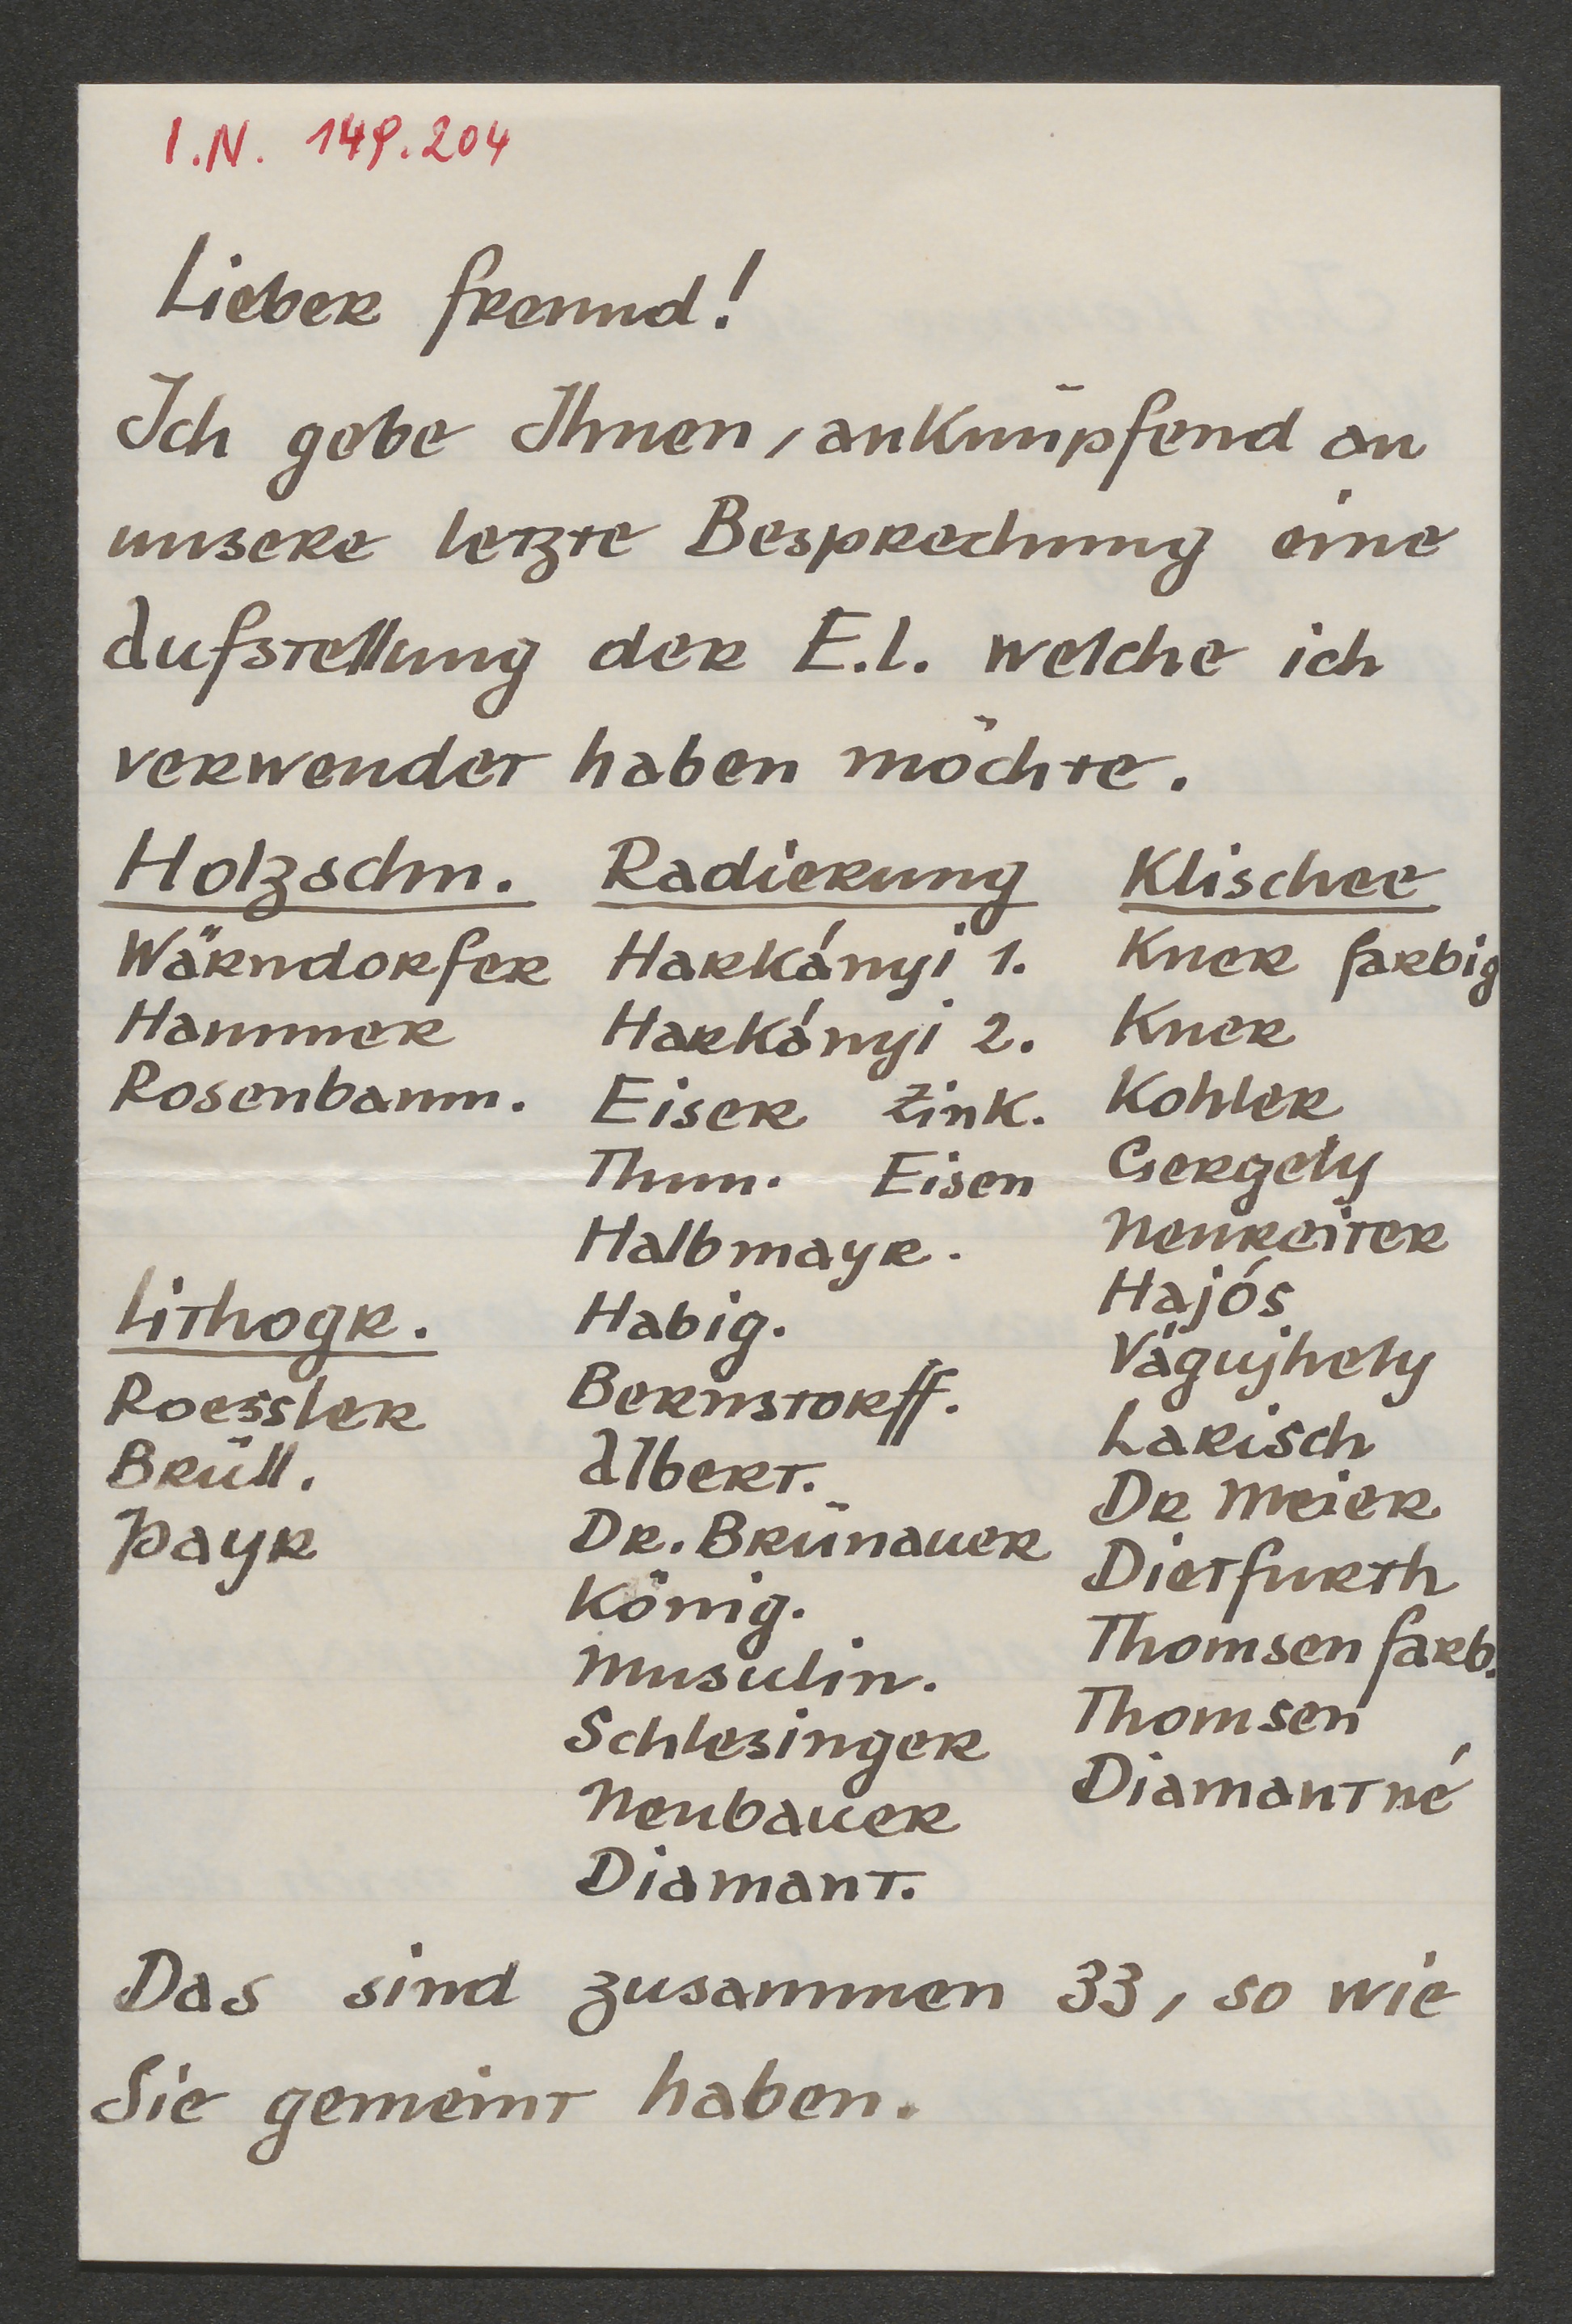 I.N. 149.204
Lieber Freund!
Ich gebe Ihnen, anknüpfend an
unsere letzte Besprechung eine
Aufstellung der E.l. welche ich
verwendet haben möchte.
Holzschn.
Wärndorfer
Hammer
Rosenbaum.
Lithogr.
Roessler
Brüll.
Payr
Radierung
Harkányi 1.
Harkányi 2.
Eiser Zink.
Thun. Eisen
Halbmayr.
Habig.
Bernstorff.
Albert.
Dr. Brünauer
König.
Musulin.
Schlesinger
Neubauer
Diamant.
Klischee
Kner farbig
Kner
Kohler
Gergely
Neureiter
Hajós
Vágujhely
Larisch
Dr Meier
Dietfurth
Thomsen farb.
Thomsen
Diamantné
Das sind zusammen 33, so wie
Sie gemeint haben.